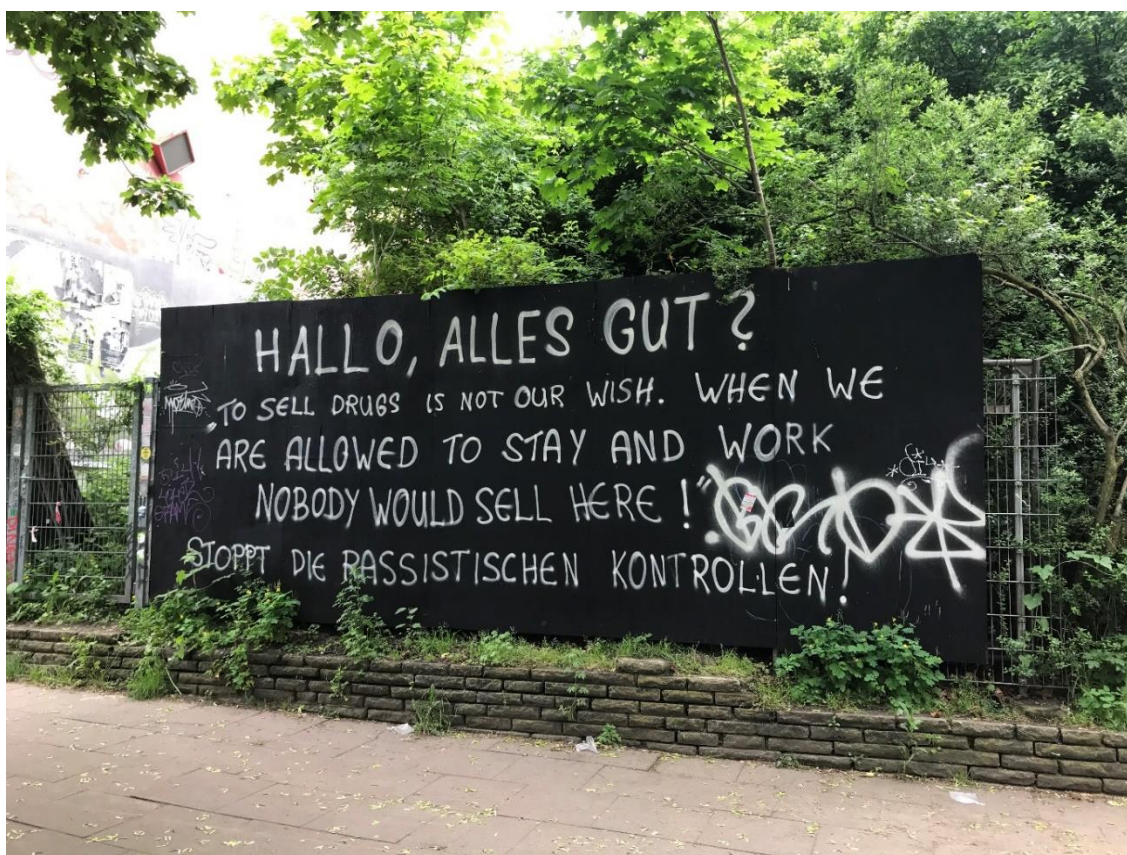 HALLO, ALLES GUT?
„TO SELL DRUGS IS NOT OUR WISH. WHEN WE
ARE ALLOWED TO STAY AND WORK
NOBODY WOULD SELL HERE!"
STOPPT DIE RASSISTISCHEN KONTROLLEN!